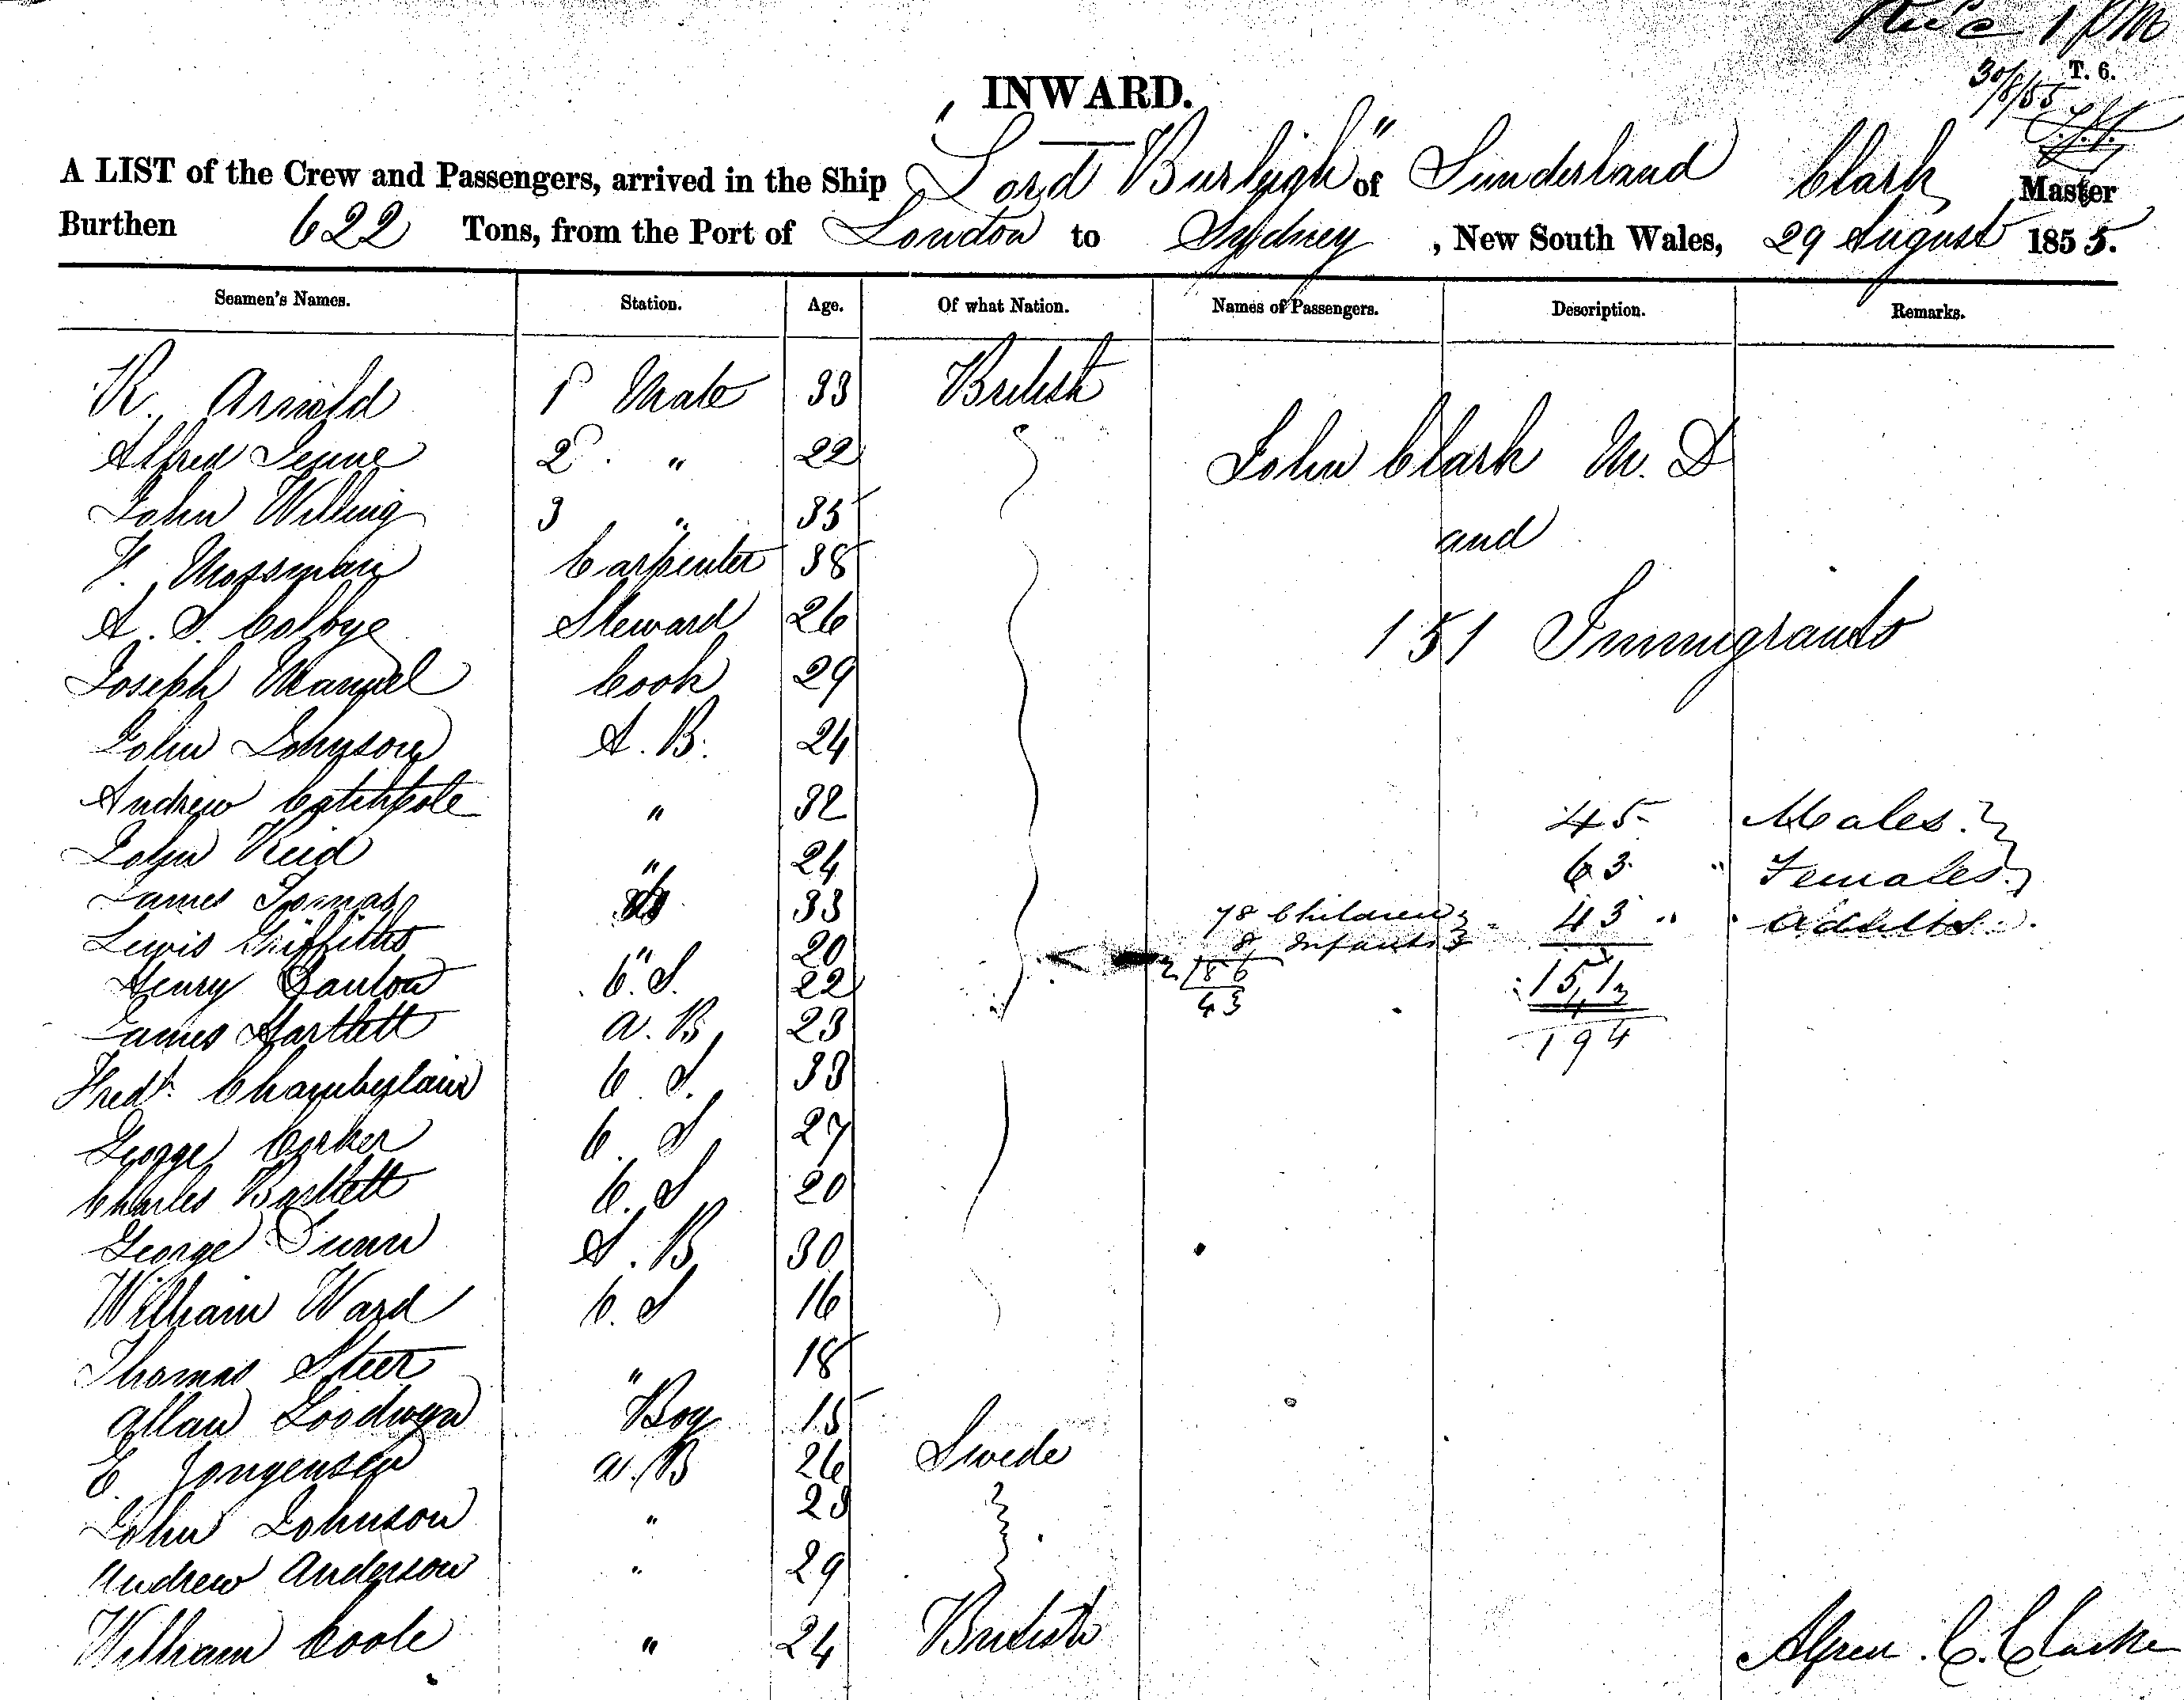 Rec'd 1 PM
30/8/55 T. 6.
INWARD.
A LIST of the Crew and Passengers, arrived in the Ship "Lord Burleigh" of Sunderland Clark Master
Burthen 622 Tons, from the Port of London to Sydney, New South Wales, 29 August 1855.
Seamen's Names. Station. Age. Of what Nation. Names of Passengers. Description. Remarks.
R. Arnold 1st Mate 33 British
Alfred 2d " 22 John Clark M. D
John Willing 3 " 35 and
Mossman Carpenter 38
A. S. Colbye Steward 26 151 Immigrants
Joseph Manuel Cook 29
John Johnson A. B. 24
Andrew Catchpole " 32 45 Males
John Reid " 24 63 " Females
James Tomas 33 78 Children 43 " Adults
Lewis Griffiths " 20 8 Infants 151
Henry C. S. 22 2 86 194
James Hartlett A. B 23 43
Fredk. Chamberlain C. S. 33
George Corker C. S 27
Charles Bartlett C. S 20
George Gunn A. B 30
William Ward C. S 16
Thomas Steer " 18
Allan Goodwyn Boy 15
E. Jongensen A. B 26 Swede
John Johnson " 23
Andrew Anderson " 29
William Coole " 24 British Alfred C. Clarke